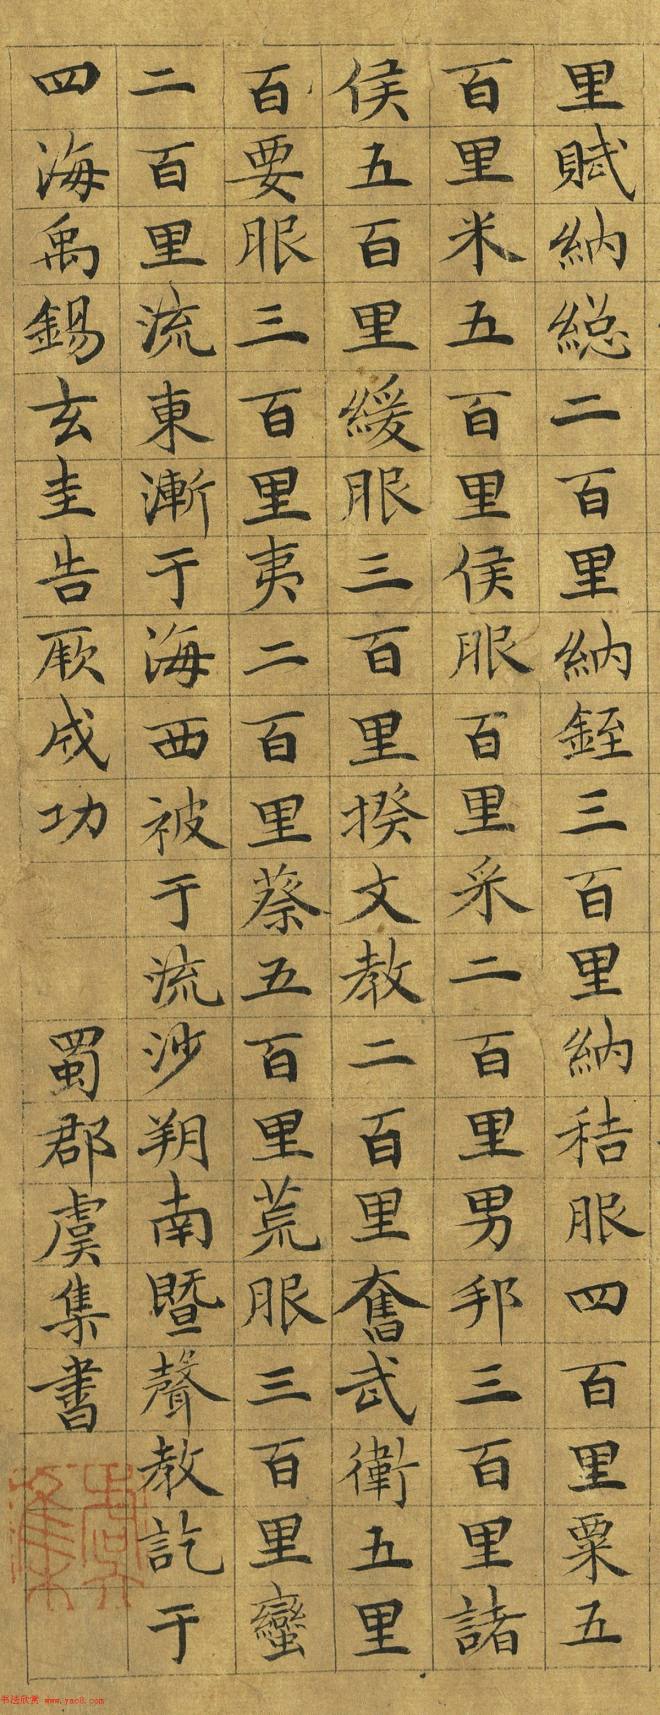 里賦納緫二百里納銍三百里納秸服四百里粟五
百里米五百里侯服百里采二百里男邦三百里諸
侯五百里緩服三百里揆文教二百里奮武衛五里
百要服三百里夷二百里蔡五百里荒服三百里蠻
二百里流東漸于海西被于流沙朔南暨聲教訖于
四海禹錫玄圭告厥成功 蜀郡虞集書
虞集
书法欣赏 www.yac8.com